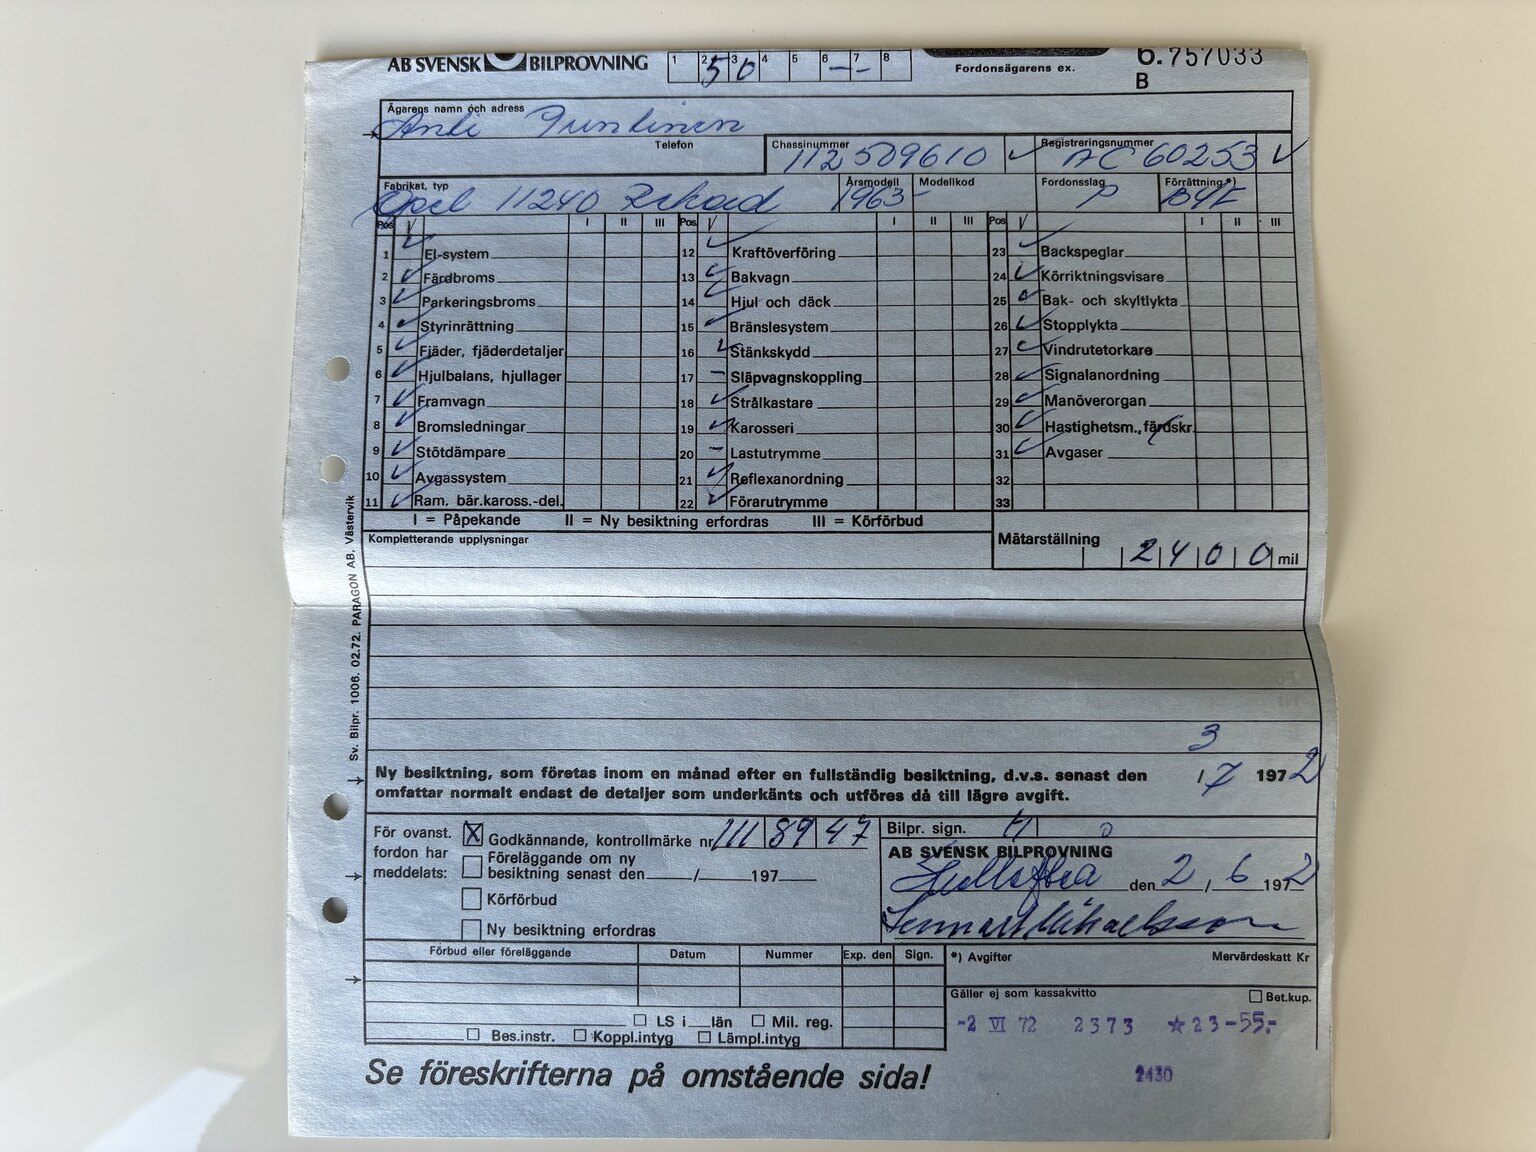 AB SVENSK BILPROVNING 1 2 3 4 5 6 7 8 50 -- Fordonsägarens ex. 6.757033
B
Ägarens namn och adress
Telefon Chassinummer 112509610 Registreringsnummer AC 60253
Fabrikat, typ Opel 11240 Rekord Årsmodell 1963 Modellkod Fordonsslag P Förrättning*)
Pos I II III Pos I II III Pos I II III
1 El-system 12 Kraftöverföring 23 Backspeglar
2 Färdbroms 13 Bakvagn 24 Körriktningsvisare
3 Parkeringsbroms 14 Hjul och däck 25 Bak- och skyltlykta
4 Styrinrättning 15 Bränslesystem 26 Stopplykta
5 Fjäder, fjäderdetaljer 16 Stänkskydd 27 Vindrutetorkare
6 Hjulbalans, hjullager 17 Släpvagnskoppling 28 Signalanordning
7 Framvagn 18 Strålkastare 29 Manöverorgan
8 Bromsledningar 19 Karosseri 30 Hastighetsm., färdskr.
9 Stötdämpare 20 Lastutrymme 31 Avgaser
10 Avgassystem 21 Reflexanordning 32
11 Ram. bär.kaross.-del. 22 Förarutrymme 33
I = Påpekande II = Ny besiktning erfordras III = Körförbud
Kompletterande upplysningar Mätarställning 2400 mil
Sv. Bilpr. 1006. 02.72. PARAGON AB. Västervik
Ny besiktning, som företas inom en månad efter en fullständig besiktning, d.v.s. senast den 3/7 1972
omfattar normalt endast de detaljer som underkänts och utföres då till lägre avgift.
För ovanst. fordon har meddelats:
X Godkännande, kontrollmärke nr 111 89 47
Föreläggande om ny
besiktning senast den / 197
Körförbud
Ny besiktning erfordras
Bilpr. sign.
AB SVENSK BILPROVNING
den 2/6 1972
Lennart Mikaelsson
Förbud eller föreläggande Datum Nummer Exp. den Sign. *) Avgifter Mervärdeskatt Kr
Gäller ej som kassakvitto Bet.kup.
LS i län Mil. reg. -2 VI 72 2373 ★23-55:-
Bes.instr. Koppl.intyg Lämpl.intyg
Se föreskrifterna på omstående sida! 2430